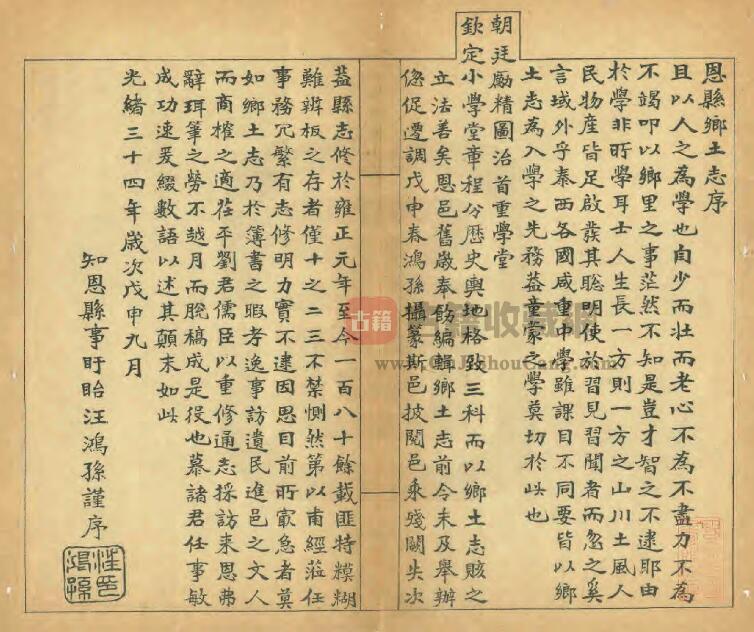 恩縣鄉土志序
且以人之為學也自少而壯而老心不為不盡力不為
不竭叩以鄉里之事茫然不知是豈才智之不逮耶由
於學非所學耳士人生長一方則一方之山川土風人
民物產皆足啟發其聰明使於習見習聞者而忽之奚
言域外乎泰西各國咸重中學雖課目不同要皆以鄉
土志為入學之先務蓋童蒙之學莫切於此也
朝廷勵精圖治首重學堂
欽定小學堂章程分歷史輿地格致三科而以鄉土志賅之
立法善矣恩邑舊歲奉飭編輯鄉土志前令未及舉辦
倥促遷調戊申春鴻孫攝篆斯邑披閱邑乘殘闕失次
蓋縣志修於雍正元年至今一百八十餘載匪特模糊
難辨板之存者僅十之二三不禁惻然第以甫經蒞任
事務冗繁有志修明力實不逮因思目前所最急者莫
如鄉土志乃於簿書之暇考逸事訪遺民進邑之文人
而商榷之適茌平劉君儒臣以重修通志採訪來恩弗
辭珥筆之勞不越月而脫稿成是役也慕諸君任事敏
成功速爰綴數語以述其顛末如此
光緒三十四年歲次戊申九月
知恩縣事盱眙汪鴻孫謹序
汪印鴻孫
古籍
www.GuJiShouCang.com